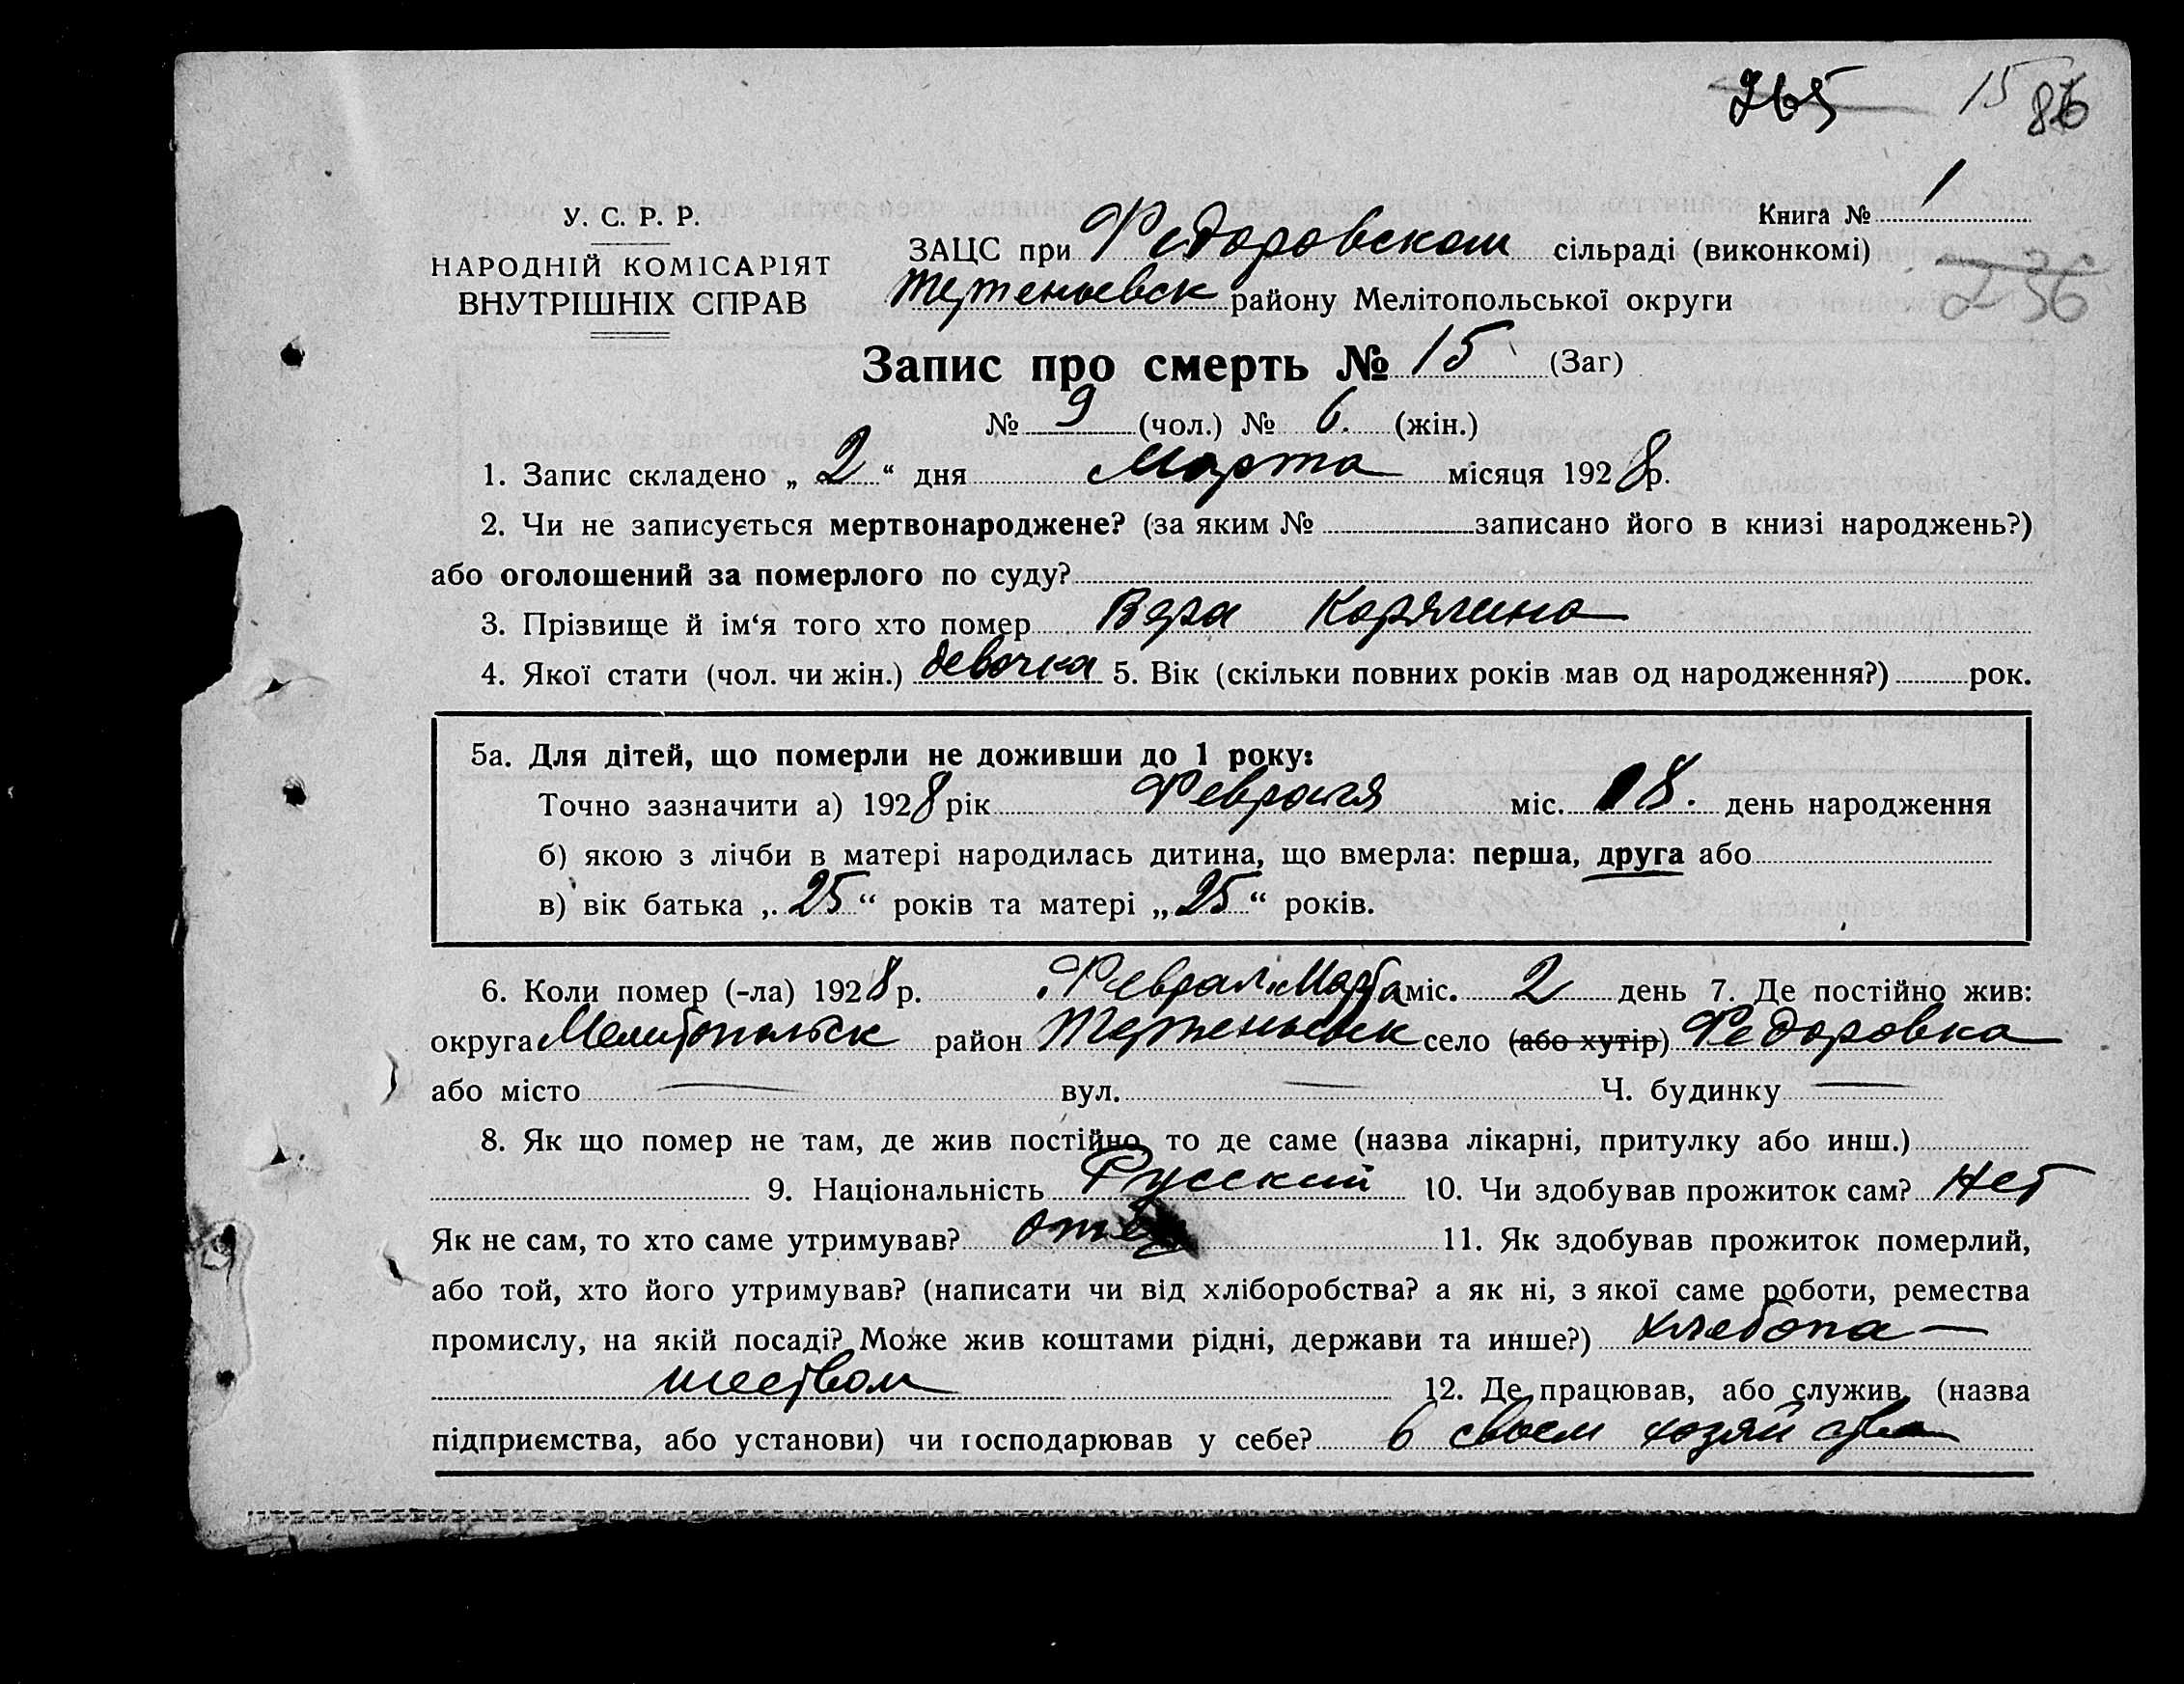 265 15 86
У. С. Р. Р.
Книга № 1
НАРОДНІЙ КОМІСАРІЯТ
ВНУТРІШНІХ СПРАВ
ЗАЦС при Федоровском сільраді (виконкомі)
236
району Мелітопольської округи
Запис про смерть № 15 (Заг)
№ 9 (чол.) № 6. (жін.)
1. Запис складено „ 2 “ дня Марта місяця 1928 р.
2. Чи не записується мертвонароджене? (за яким № записано його в книзі народжень?)
або оголошений за померлого по суду?
3. Прізвище й ім‘я того хто помер Вера Корягина
4. Якої стати (чол. чи жін.) девочка 5. Вік (скільки повних років мав од народження?) рок.
5а. Для дітей, що померли не доживши до 1 року:
Точно зазначити а) 1928 рік Февраля міс. 18. день народження
б) якою з лічби в матері народилась дитина, що вмерла: перша, друга або
в) вік батька „ 25 “ років та матері „ 25 “ років.
6. Коли помер (-ла) 1928 р. Феврал Марта міс. 2 день 7. Де постійно жив:
округа Мелитопольск район село (або хутір) Федоровка
або місто — вул. — Ч. будинку —
8. Як що помер не там, де жив постійно, то де саме (назва лікарні, притулку або инш.)
9. Національність Русский 10. Чи здобував прожиток сам? Нет
Як не сам, то хто саме утримував? отец 11. Як здобував прожиток померлий,
або той, хто його утримував? (написати чи від хліборобства? а як ні, з якої саме роботи, ремества
промислу, на якій посаді? Може жив коштами рідні, держави та инше?) хлебопа—
шеством 12. Де працював, або служив, (назва
підприємства, або установи) чи господарював у себе? в своем хозяйстве